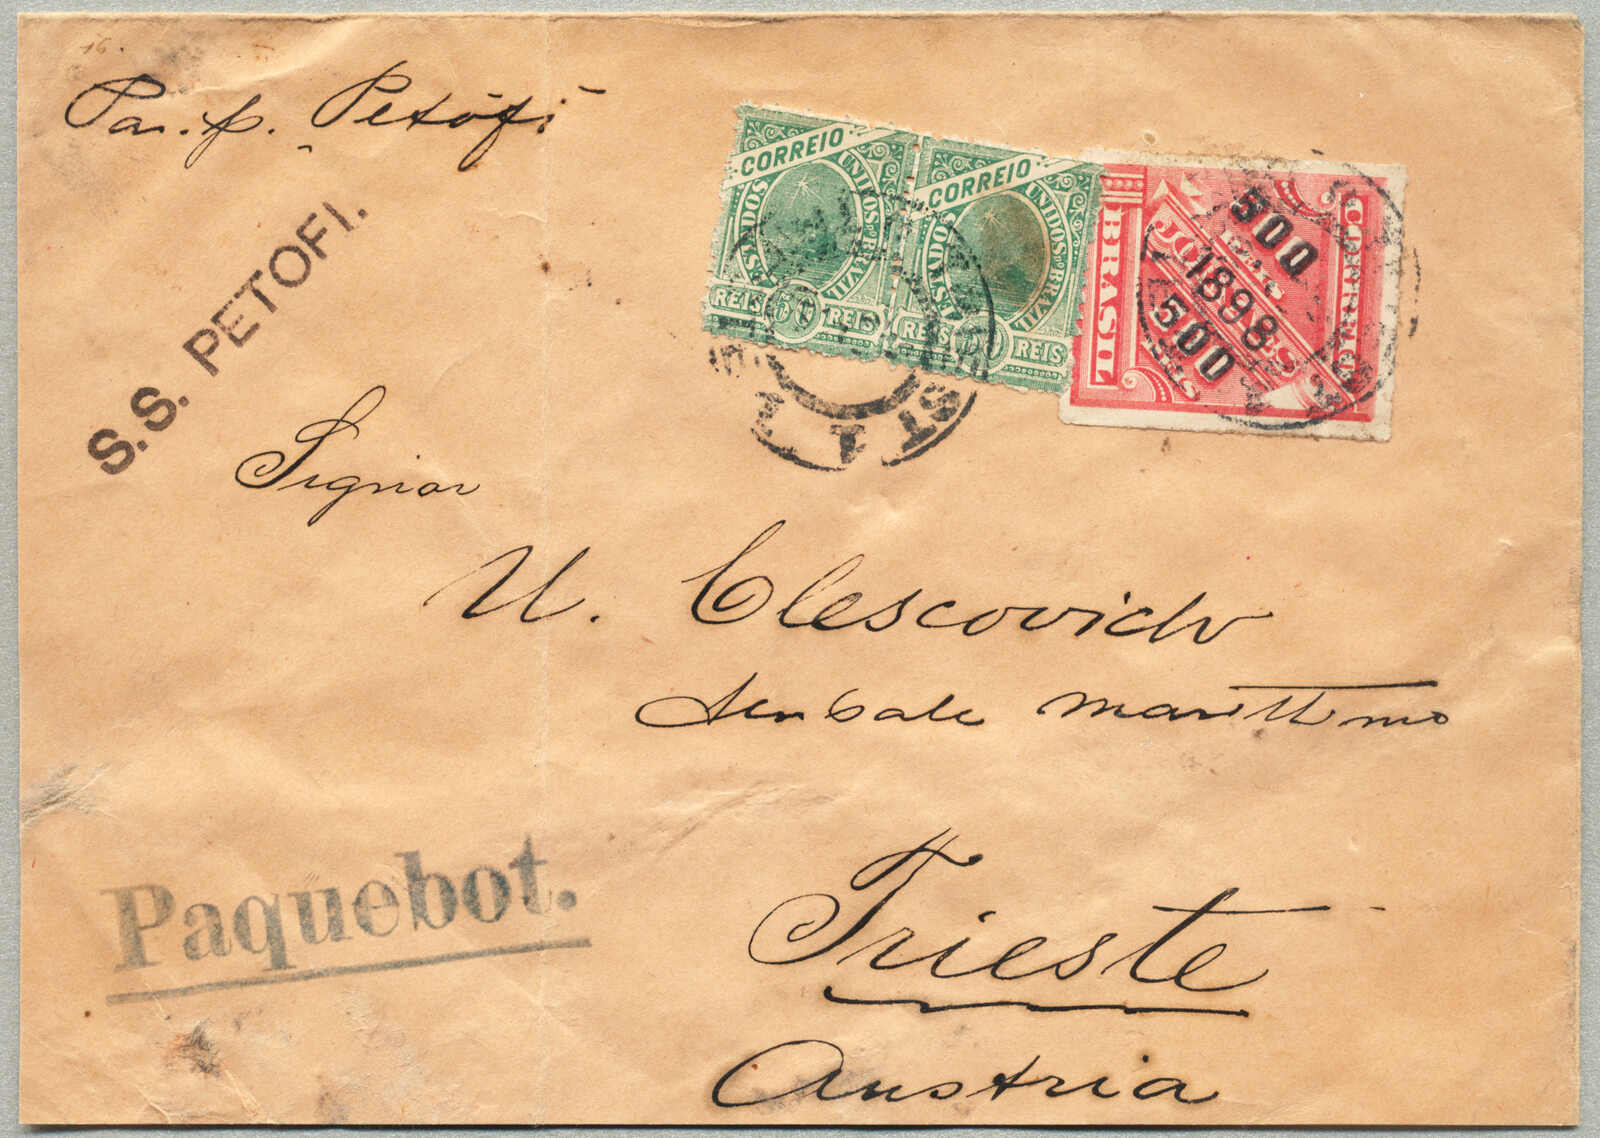 16.
Par. p. Petöfi
S.S. PETOFI.
CORREIO
E. SANDOS UNIDOS DO BRAZIL
REIS 50 REIS
CORREIO
E. SANDOS UNIDOS DO BRAZIL
REIS 50 REIS
CORREIO
BRASUL
JORNAES
500
1898
500
TRIEST 1
Signor
U. Clescovich
Sensale marittimo
Trieste
Austria
Paquebot.